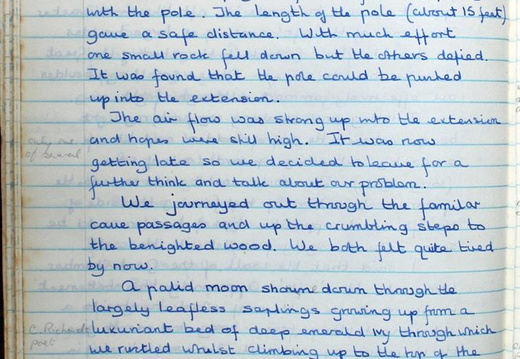 with the pole. The length of the pole (about 15 feet)
gave a safe distance. With much effort
one small rock fell down but the others defied.
It was found that the pole could be pushed
up into the extension.
The air flow was strong up into the extension
and hopes were still high. It was now
getting late so we decided to leave for a
further think and talk about our problem.
We journeyed out through the familar
cave passages and up the crumbling steps to
the benighted wood. We both felt quite tired
by now.
A palid moon shown down through the
largely leafless saplings growing up from a
C. Richards
poet
luxuriant bed of deep emerald ivy through which
we rustled whilst climbing up to the top of the